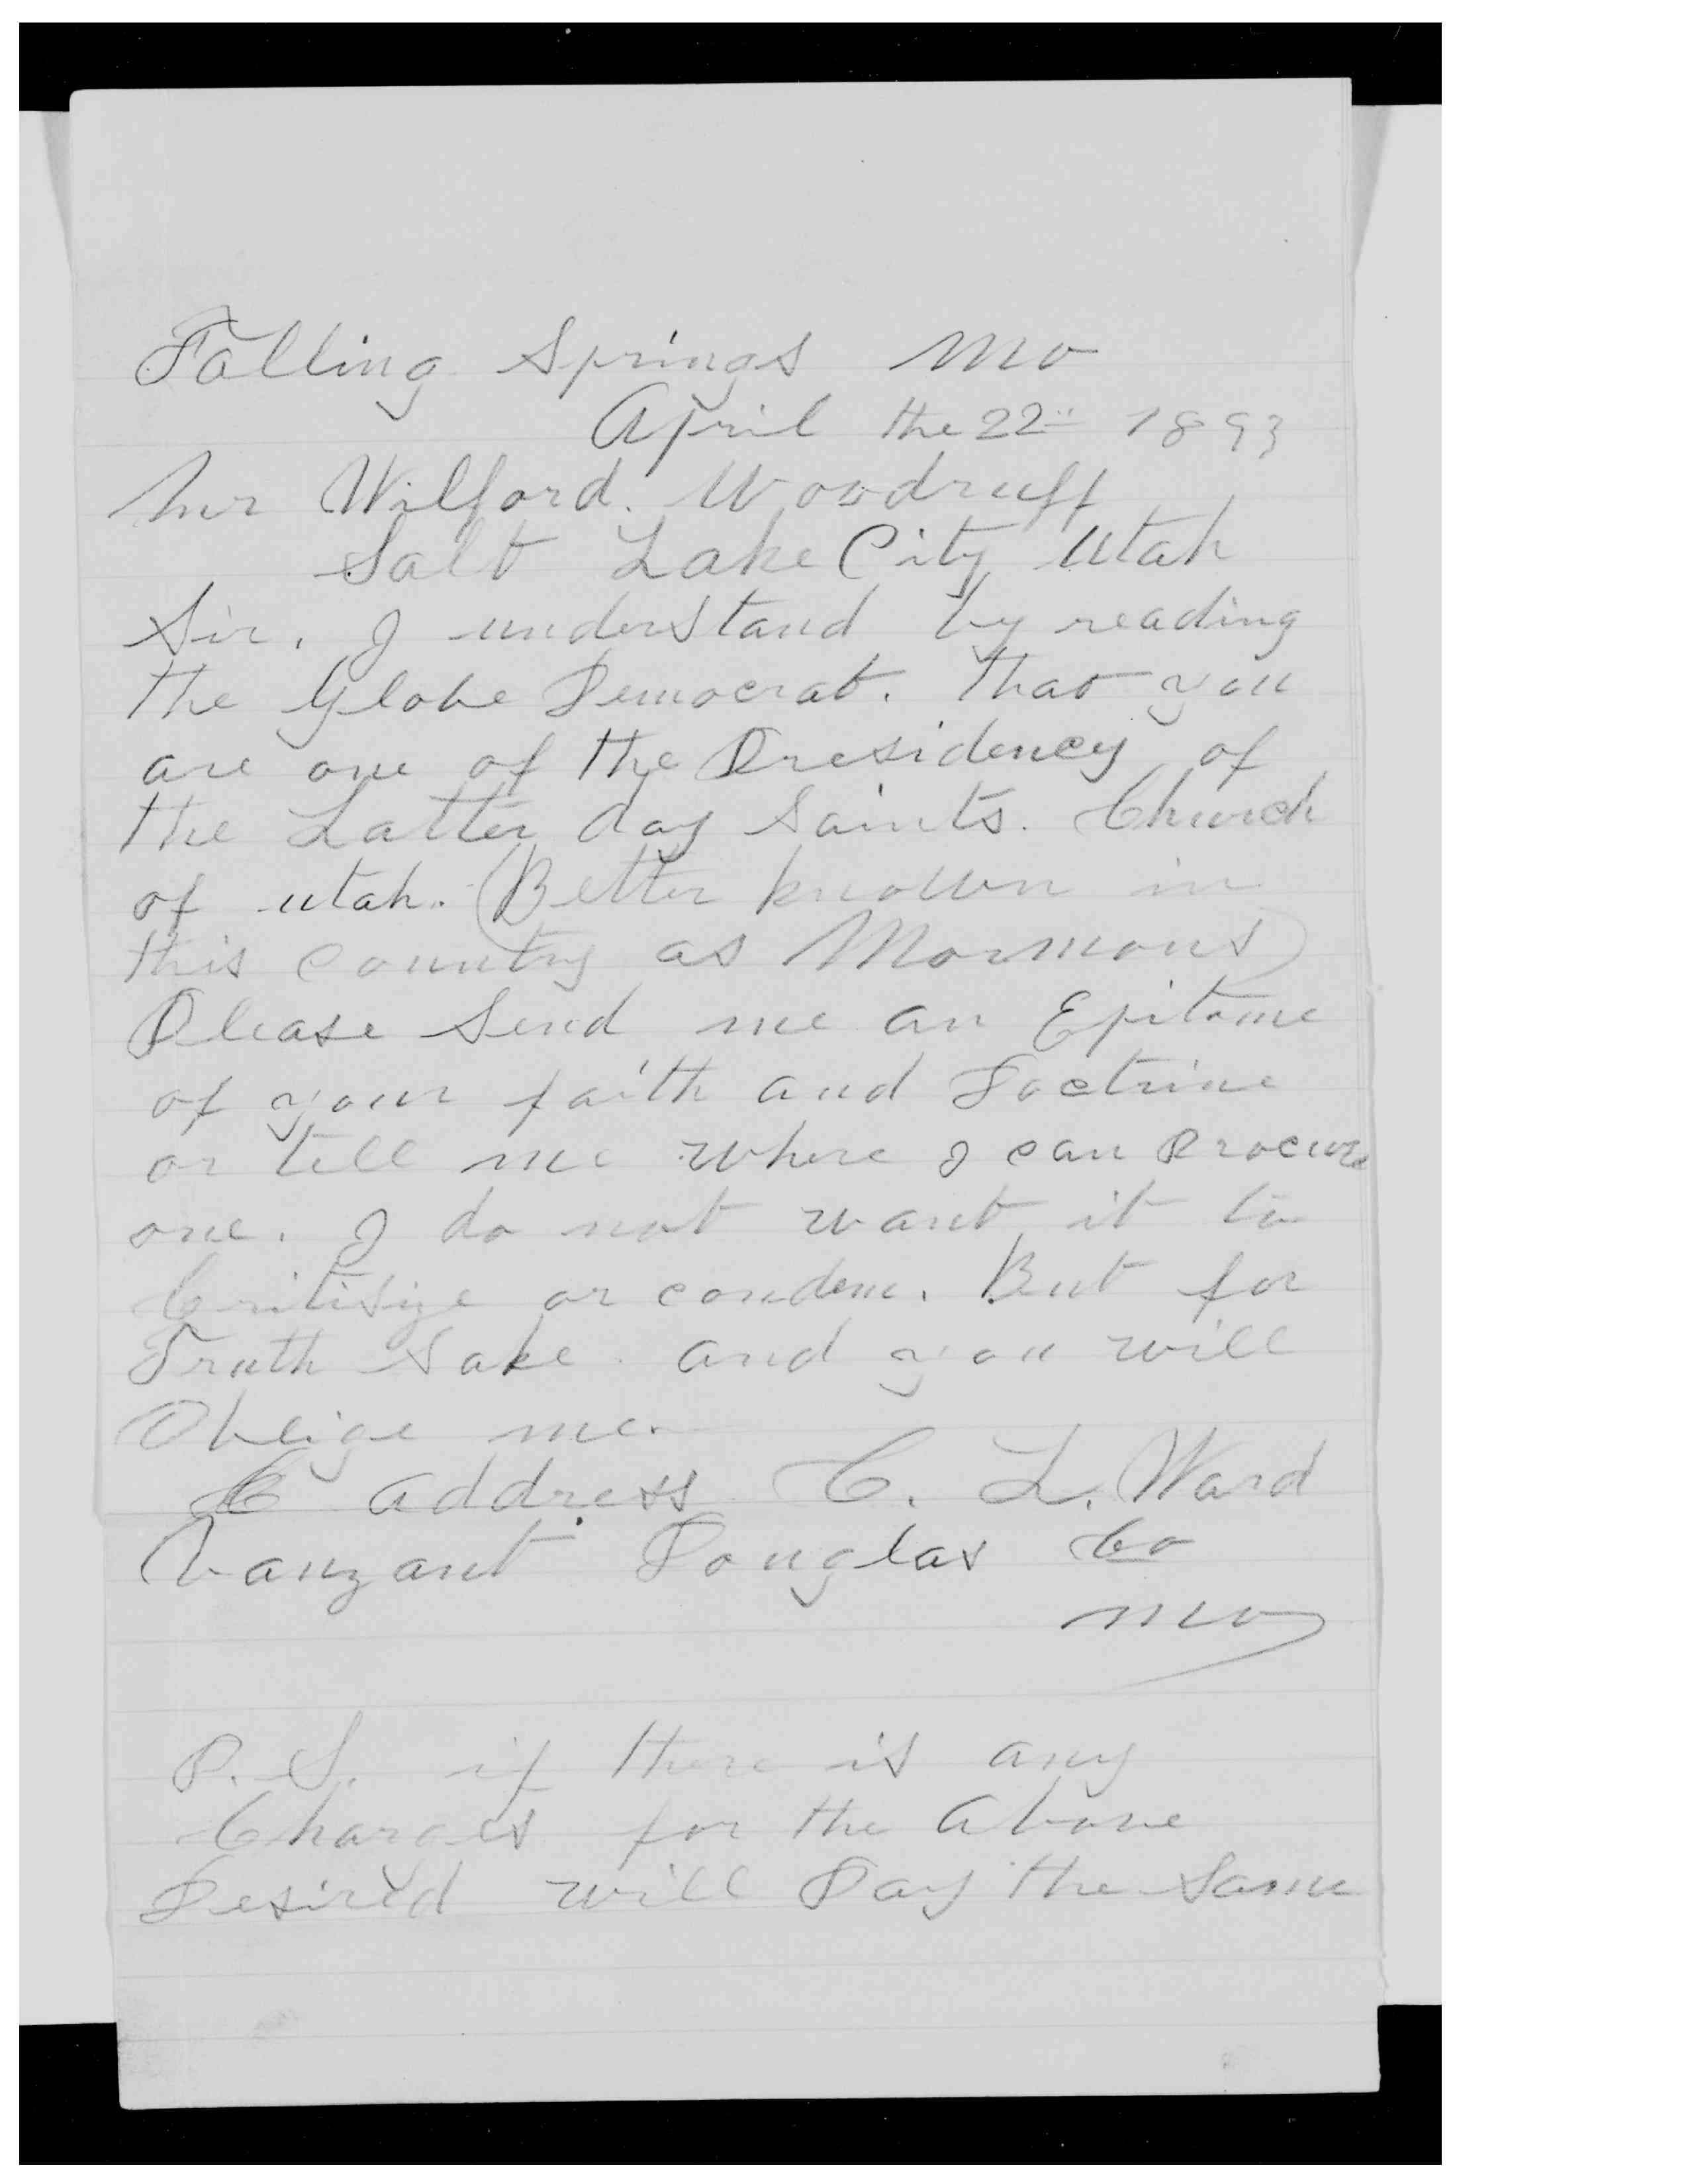 Falling Springs Mo
April the 22" 1893
Mr Wilford. Woodruff
Salt Lake City Utah
Sir. I understand by reading
the Globe Democrat. That you
are one of the Presidency of
the Latter day Saints. Church
of utah. (Better known in
this Country as Mormons)
Please Send me an Epitome
of your faith and Doctrine
or tell me where I can Procure
one. I do not want it to
Critisize or condem. But for
Truth Sake. and you will
Oblige me.
Address C. L. Ward
Vanzant Douglas Co
Mo
P. S. if there is any
Charges for the above
Desired will Pay the Same